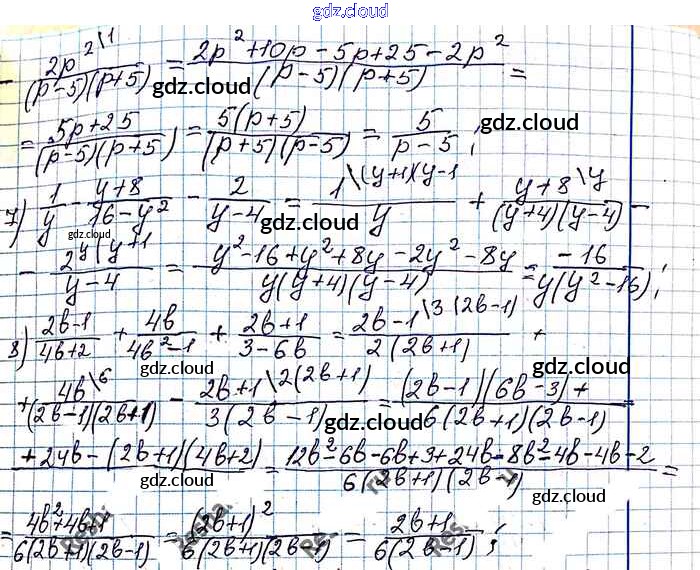 gdz.cloud
- 2p^2\1 / (p-5)(p+5) = 2p^2+10p-5p+25-2p^2 / (p-5)(p+5) =
gdz.cloud gdz.cloud
= 5p+25 / (p-5)(p+5) = 5(p+5) / (p+5)(p-5) = 5 / p-5 ; gdz.cloud
gdz.cloud gdz.cloud
7) 1/y - y+8 / 16-y^2 - 2 / y-4 = 1\(y+4)(y-1 / y + y+8\y / (y+4)(y-4) -
gdz.cloud gdz.cloud gdz.cloud
- 2\y(y+1 / y-4 = y^2-16+y^2+8y-2y^2-8y / y(y+4)(y-4) = -16 / y(y^2-16) ;
gdz.cloud gdz.cloud
8) 2b-1 / 4b+2 + 4b / 4b^2-1 + 2b+1 / 3-6b = 2b-1\3(2b-1) / 2(2b+1) +
gdz.cloud gdz.cloud
+ 4b\6 / (2b-1)(2b+1) - 2b+1\2(2b+1) / 3(2b-1) = (2b-1)(6b-3)+ / 6(2b+1)(2b-1)
gdz.cloud gdz.cloud
+24b-(2b+1)(4b+2) = 12b^2-6b-6b+3+24b-8b^2-4b-4b-2 / 6(2b+1)(2b-1) =
gdz.cloud gdz.cloud
= 4b^2+4b+1 / 6(2b+1)(2b-1) = (2b+1)^2 / 6(2b+1)(2b-1) = 2b+1 / 6(2b-1) ;